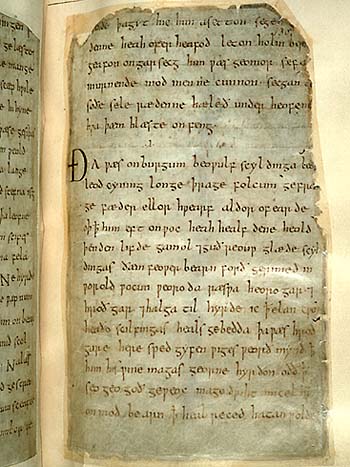 þa gyt hie him asetton sege
denne heah ofer heafod leton holm ber
geafon on garsecg him ƿæs geomor sefa
murnende mod men ne cunnon secgan to
soðe sele rædenne hæleð under heofenu
hƿa þæm hlæste onfeng.
Ða ƿæs on burgum beoƿulf scyldinga
leod cyning longe þrage folcum gefræ
ge fæder ellor hƿearf aldor of earde
oþ ꝥ him eft onƿoc heah healfdene heold
þenden lifde gamol ⁊ guð reouƿ glæde scyl
dingas ðæm feoƿer bearn forð gerimed in
ƿorold ƿocun ƿeoroda ræsƿa heoro gar ⁊
hroð gar ⁊ halga til hyrde ic ꝥ elan cƿen
heaðo scilfingas heals gebedda þa ƿæs hroð
gare here sped gyfen ƿiges ƿeorð mynd ꝥ
him his ƿine magas georne hyrdon oðð ꝥ
seo geogoð geƿeox mago driht micel hi
on mod bearn ꝥ heal reced hatan ƿolde